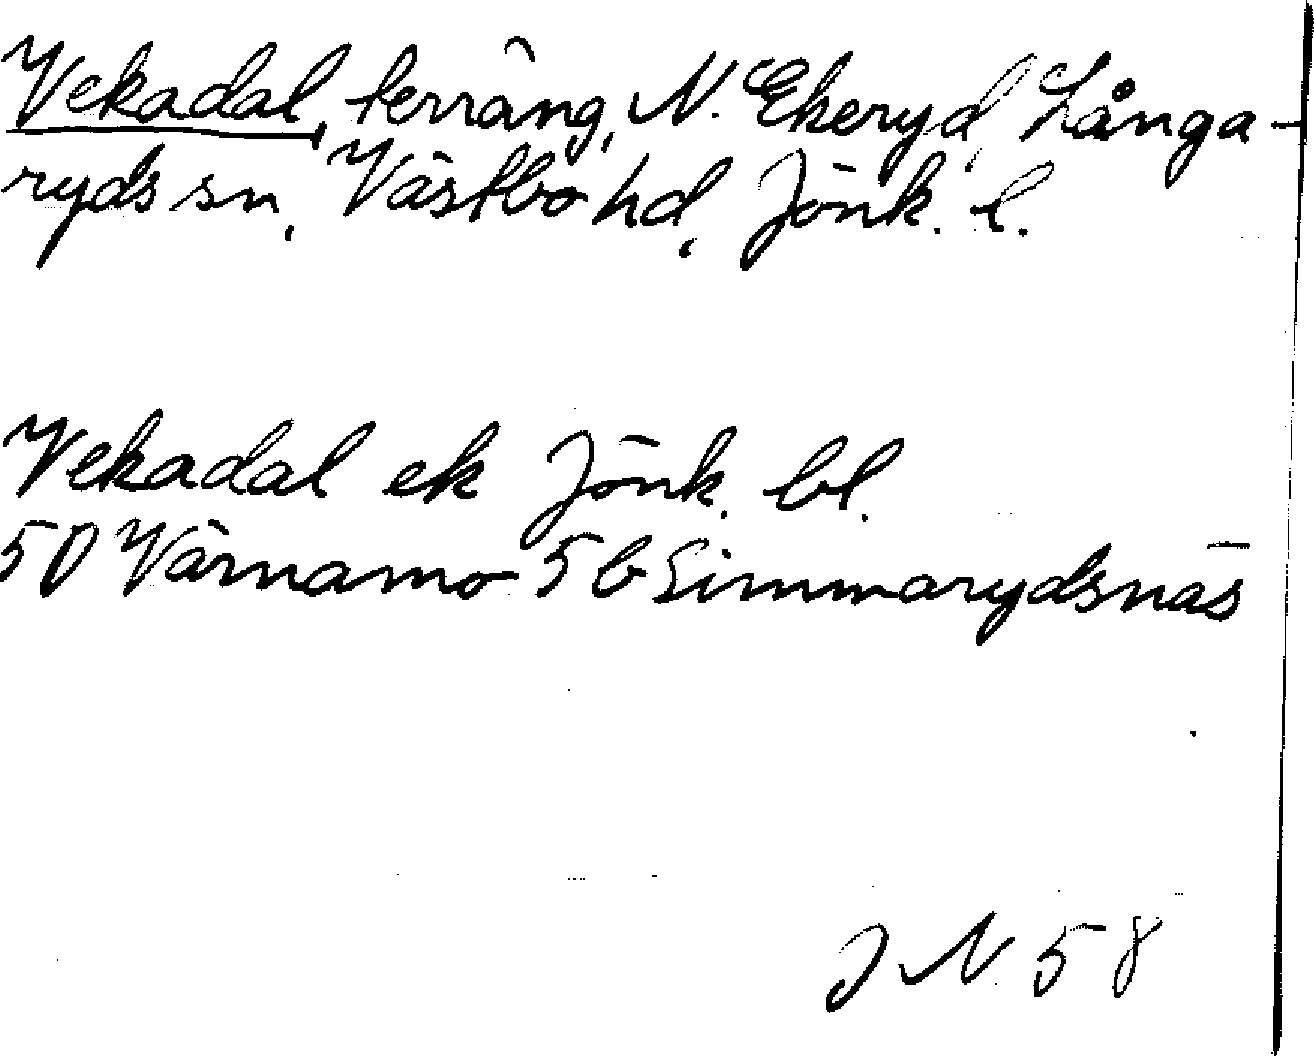 Vekadal, terräng, N. Ekeryd, Långa-
ryds sn, Västbo hd, Jönk. l.
Vekadal ek Jönk. bl.
5D Värnamo 5b Simmarydsnäs
JN 58